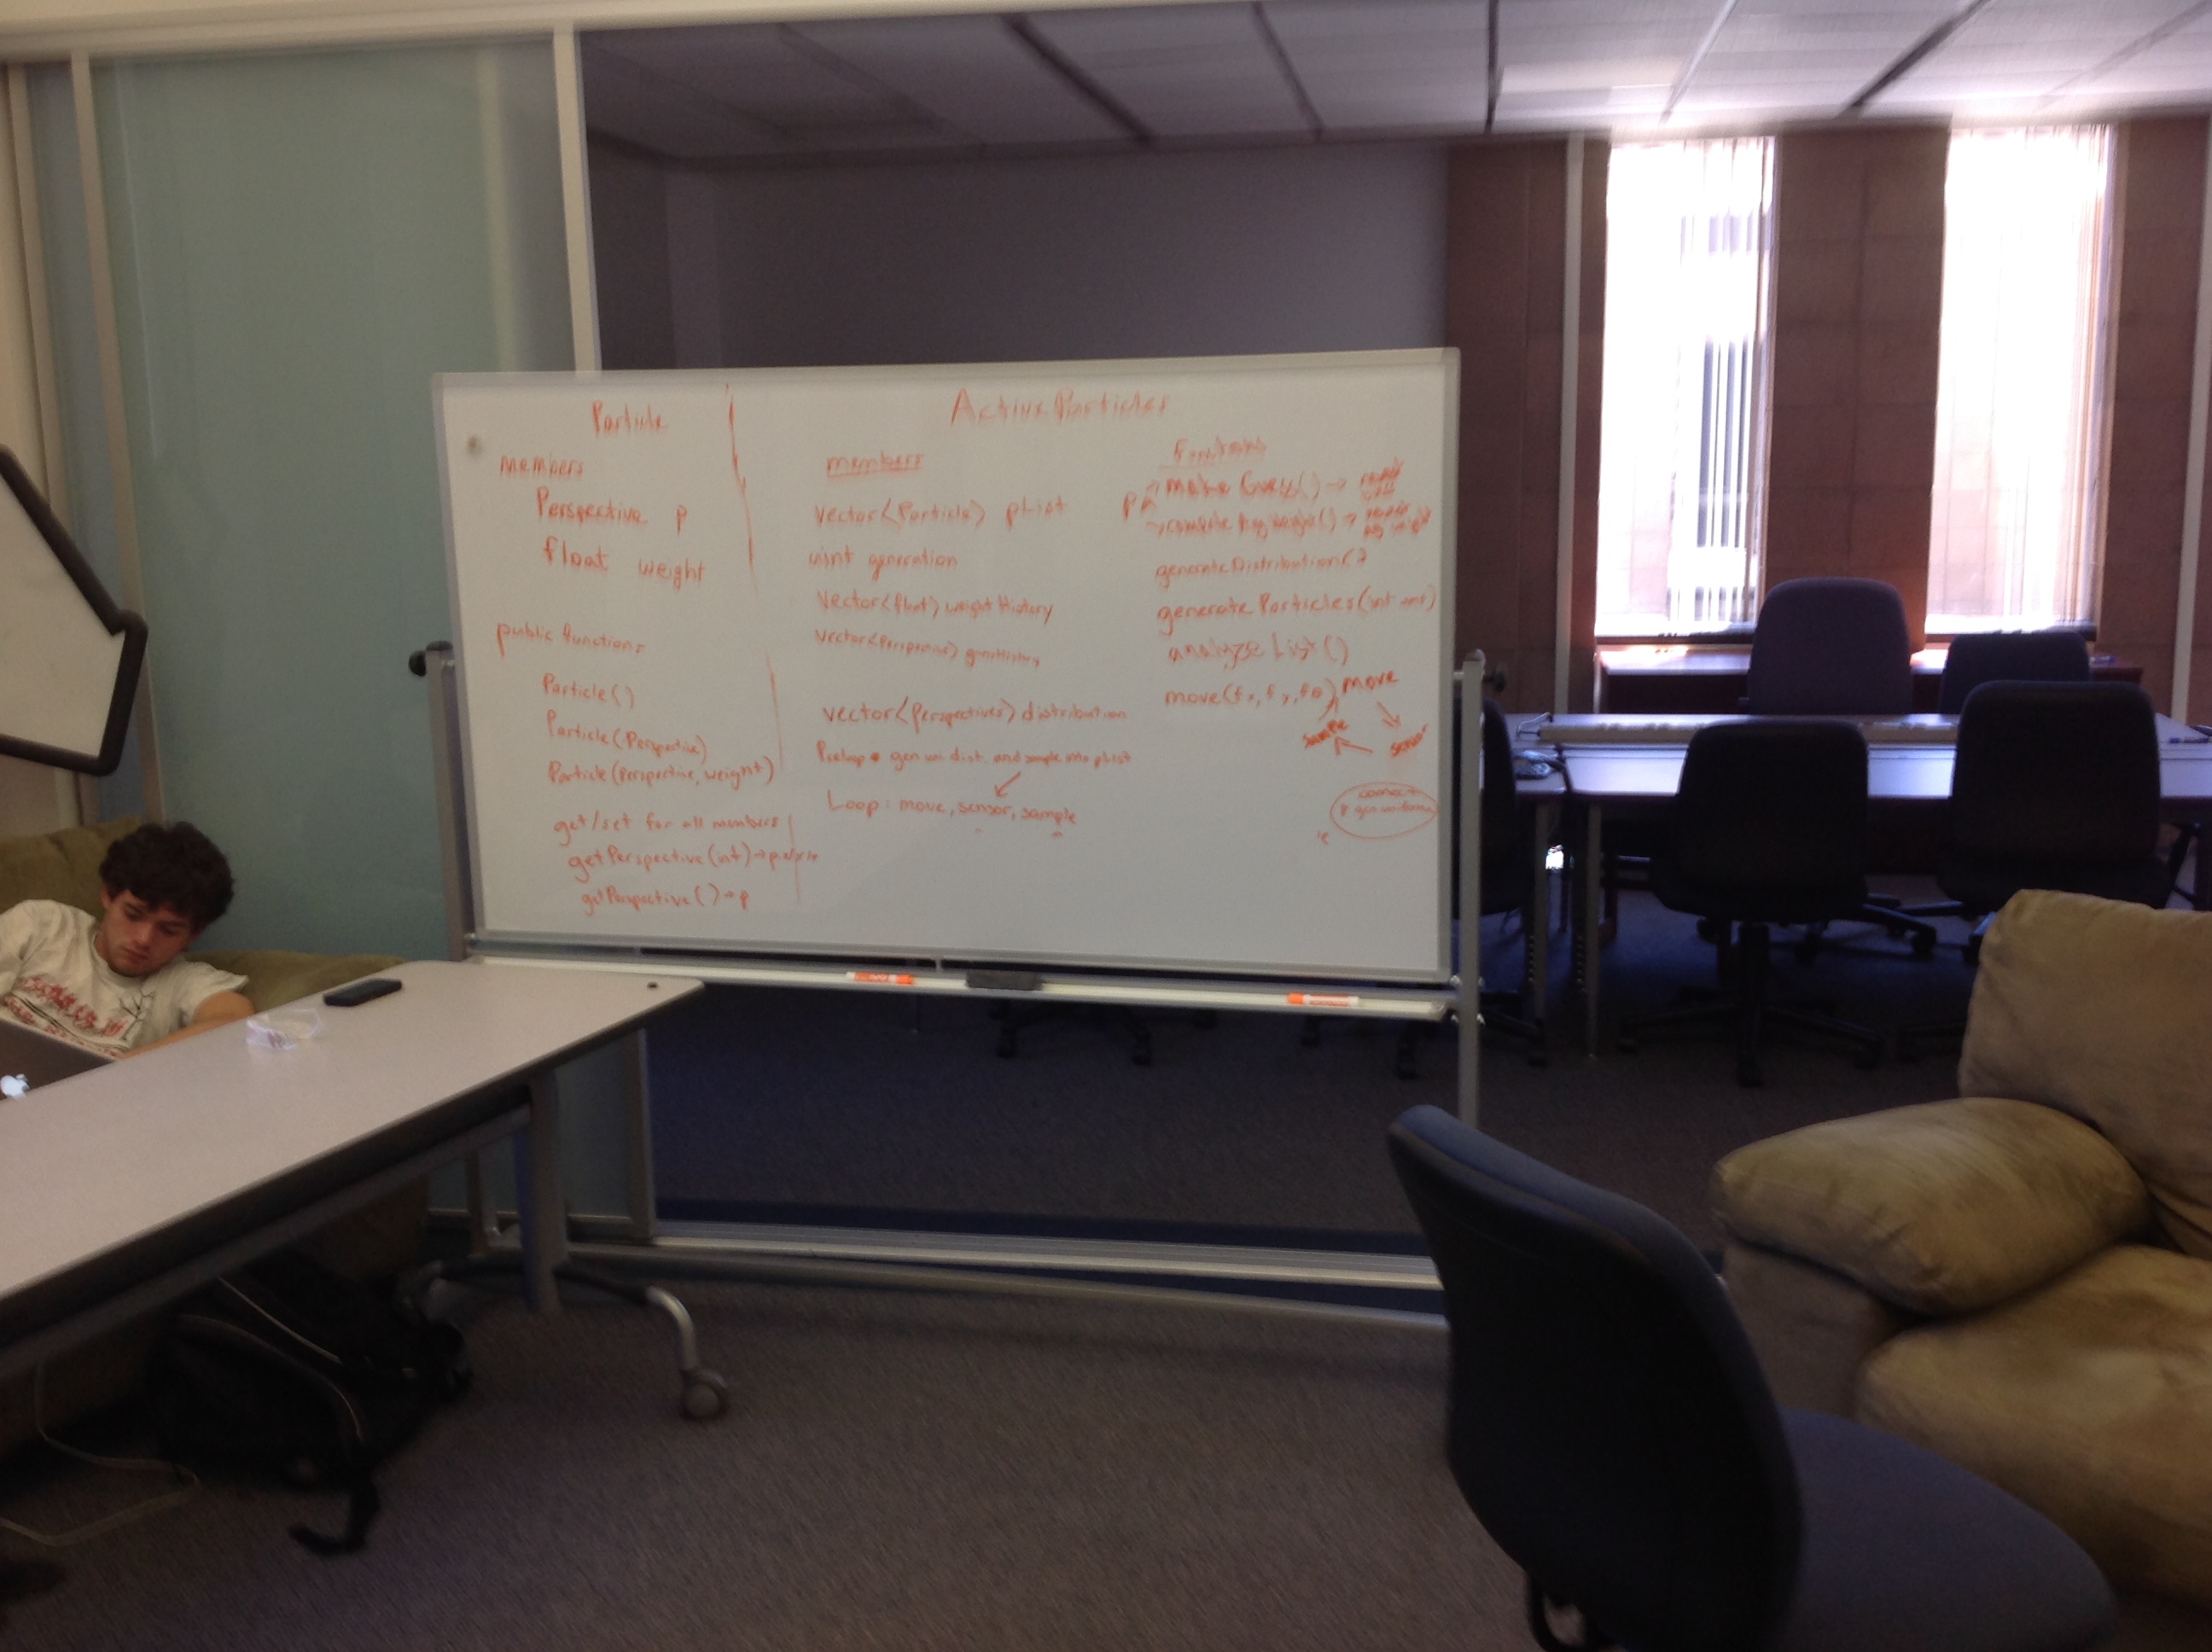 Particle
members
Perspective p
float weight
public functions
Particle()
Particle(Perspective)
Particle(Perspective, weight)
get/set for all members
getPerspective(int)→p.x/y/
getPerspective()→p
ActiveParticles
members
vector<Particle> pList
uint generation
vector<float> weightHistory
vector<Perspective> genHistory
vector<Perspectives> distribution
gen uni dist. and sample into pList
Loop: move, sensor, sample
Functions
make Guess() →
compute Avg Weight() →
generateDistribution()
generateParticles(int
analyzeList()
move(fx, fy, fθ)
move
sensor
sample
gen uniform